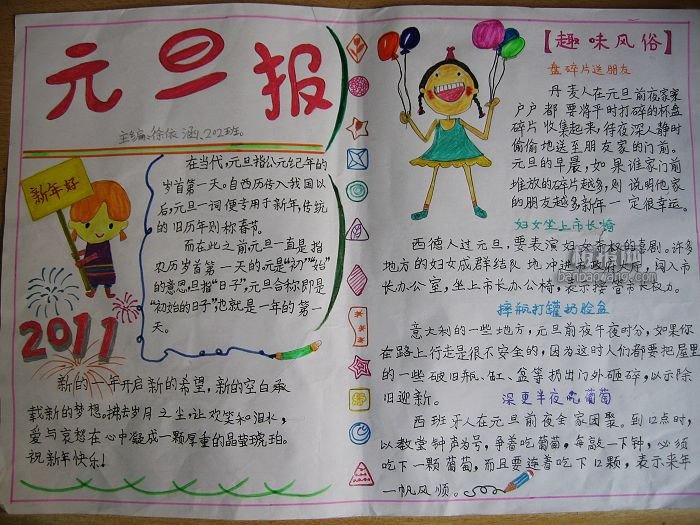 元旦报
主编:徐依涵 202班。
新年好
2011
在当代,元旦指公元纪年的
岁首第一天。自西历传入我国以
后,元旦一词便专用于新年,传统
的旧历年则称春节。
而在此之前元旦一直是指
农历岁首第一天的。元是“初”“始”
的意思,旦指“日子”,元旦合称即是
“初始的日子”也就是一年的第一
天。
新的一年开启新的希望,新的空白承
载新的梦想。拂去岁月之尘,让欢笑和泪水,
爱与哀愁在心中凝成一颗厚重的晶莹琥珀。
祝新年快乐!
【趣味风俗】
盘碎片送朋友
丹麦人在元旦前夜家家
户户都要将平时打碎的杯盘
碎片收集起来,待夜深人静时
偷偷地送至朋友家的门前。
元旦的早晨,如果谁家门前
堆放的碎片越多,则说明他家
的朋友越多新年一定很幸运。
妇女坐上市长椅
西德人过元旦,要表演妇女夺权的喜剧。许多
地方的妇女成群结队地冲进市政府大厅,闯入市
长办公室,坐上市长办公椅,表示接管市长权力。
摔瓶打罐扔脸盆
意大利的一些地方,元旦前夜午夜时分,如果你
在路上行走是很不安全的,因为这时人们都要把屋里
的一些破旧瓶、缸、盆等扔出门外砸碎,以示除
旧迎新。
深更半夜吃葡萄
西班牙人在元旦前夜全家团聚。到12点时,
以教堂钟声为号,争着吃葡萄,每敲一下钟,必须
吃下一颗葡萄,而且要连着吃下12颗,表示来年
一帆风顺。